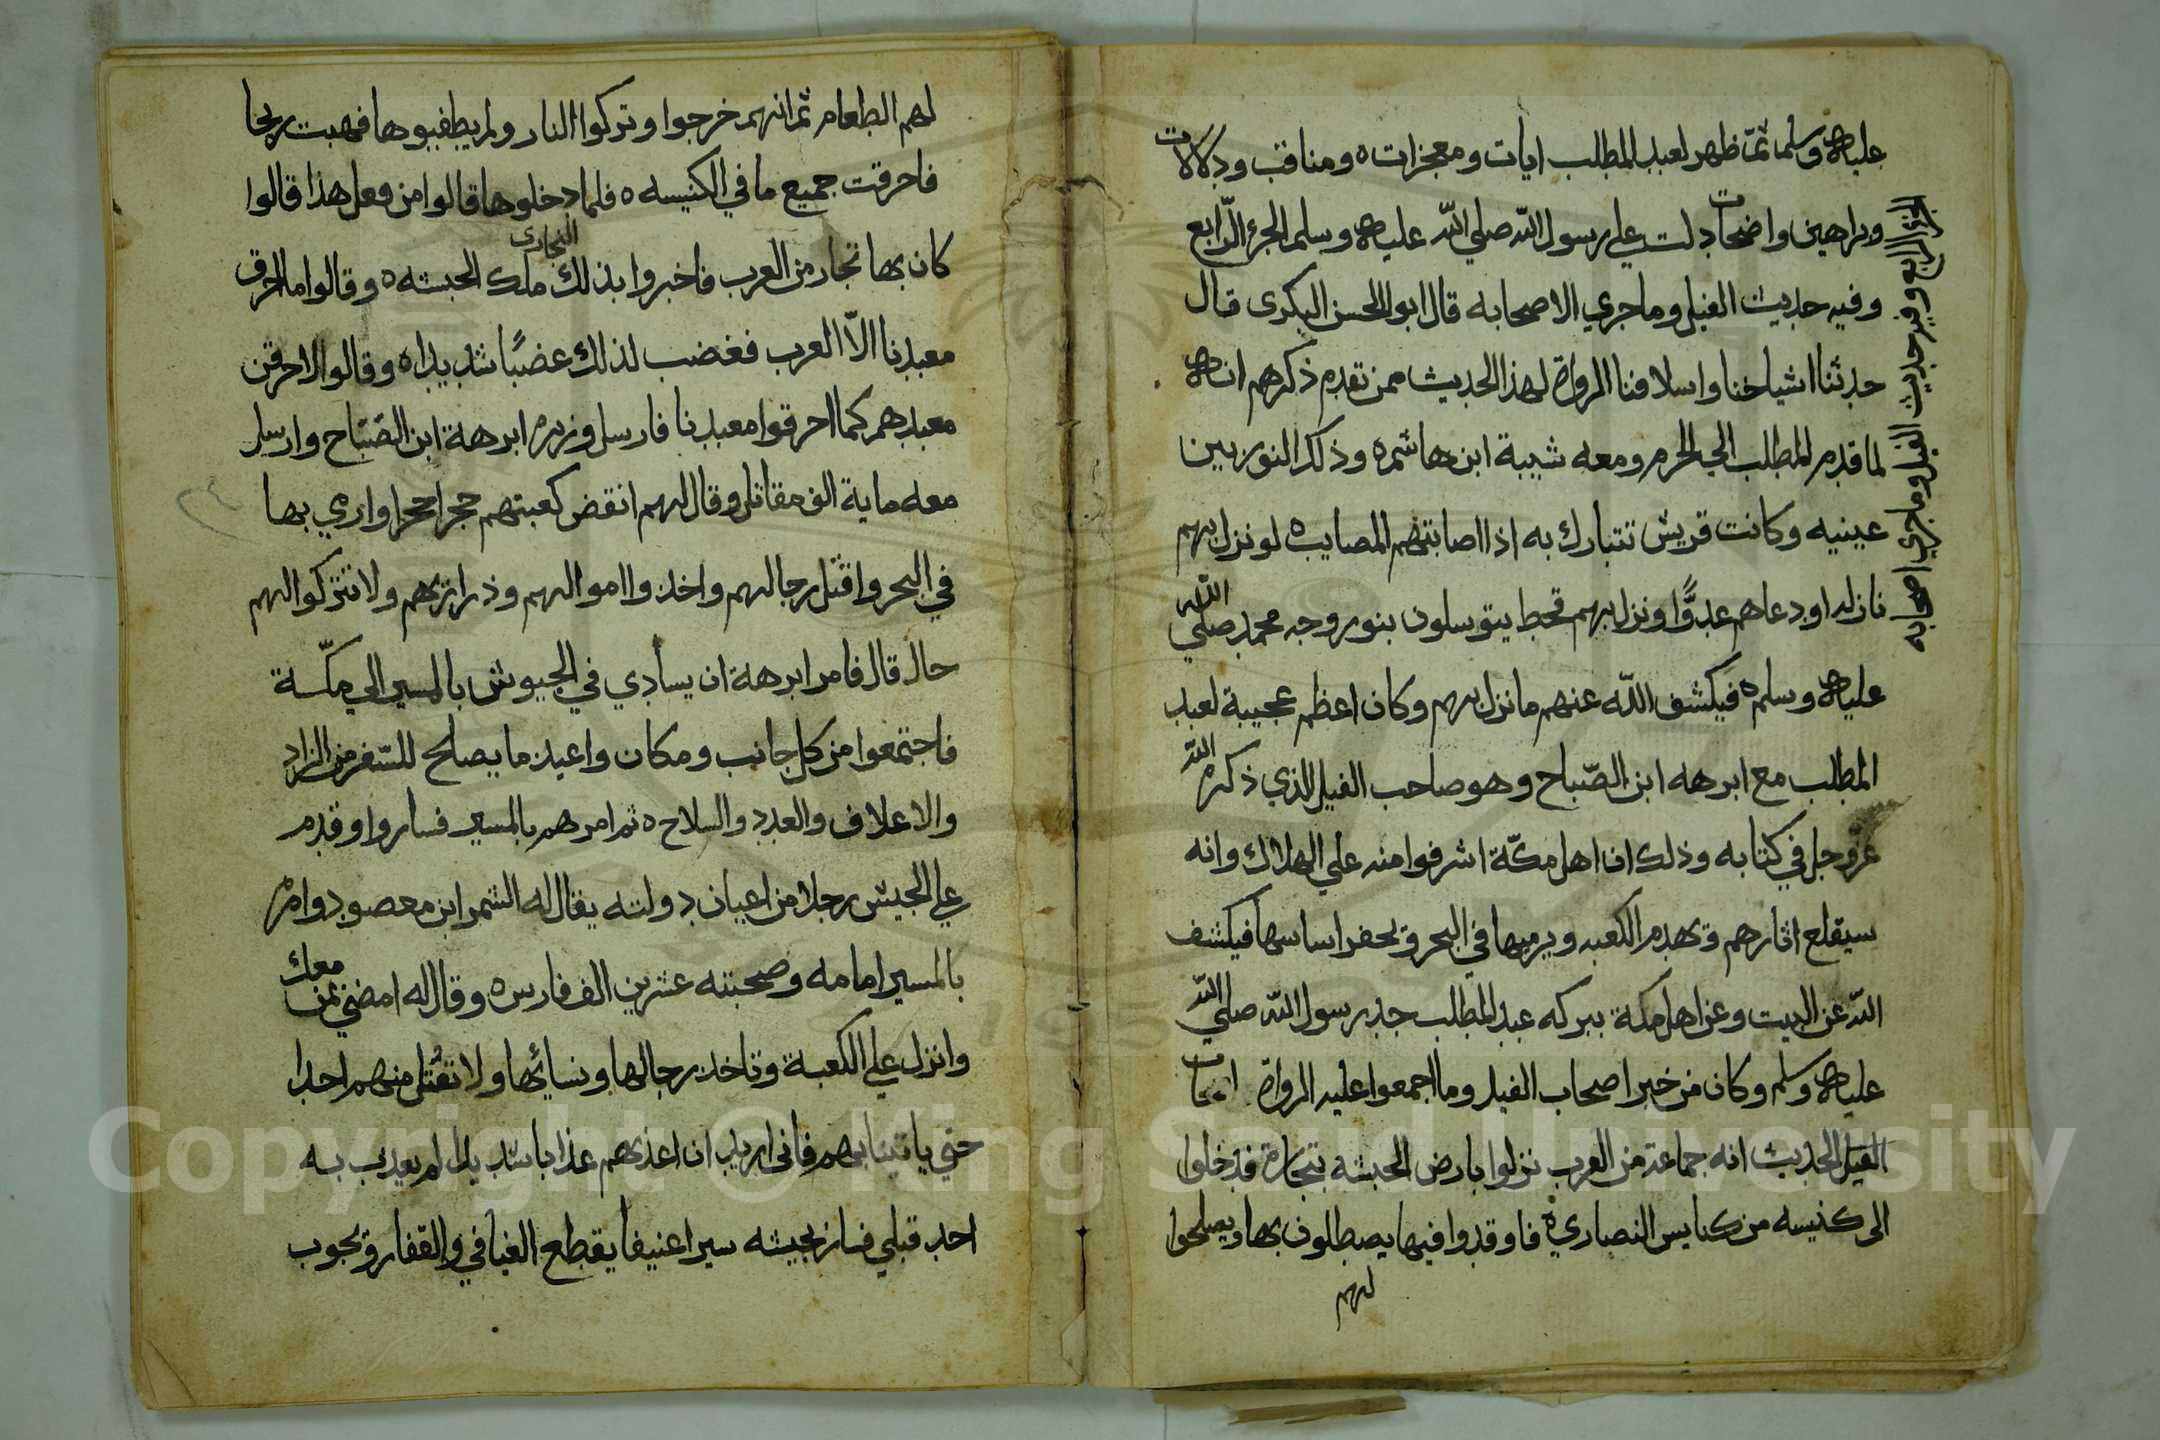 عليه وسلم ثم ظهر لعبد المطلب ايات ومعجزات ه ومناقب ودلالات
وبراهين واضحات دلت علي رسول الله صلي الله عليه وسلم الجزء الرابع
وفيه حديث الفيل وما جري الاصحابه قال ابو الحسن البكري قال
حدثنا اشياخنا واسلافنا الرواة لهذا الحديث ممن تقدم ذكرهم انه
لما قدم المطلب الي الحرم ومعه شيبة ابن هاشم ه وذلك النور بين
عينيه وكانت قريش تتبارك به اذا اصابتهم المصايب ه لو نزل بهم
نازله او دعاهم عدوًّا ونزل بهم قحط يتوسلون بنور وجه محمد صلي الله
عليه وسلم ه فيكشف الله عنهم ما نزل بهم وكان اعظم عجيبة لعبد
المطلب مع ابرهه ابن الصّباح وهو صاحب الفيل الذي ذكره الله
عز وجل في كتابه وذلك ان اهل مكّة اشرفوا منه علي الهلاك وانه
سيقلع اثارهم ويهدم الكعبه ويرميها في البحر ويحفر اساسها فيكشف
الله عن البيت وعن اهل مكة ببركه عبد المطلب جد رسول الله صلي الله
عليه وسلم وكان من خبر اصحاب الفيل وما اجمعوا عليه الرواة
الفيل الحديث انه جماعة من العرب نزلوا بارض الحبشه بتجارة فدخلوا
الى كنيسه من كنايس النصاري ه فاوقدوا فيها يصطلون بها ويصلحوا
لهم
الجزء الرابع وفيه حديث الفيل وما جري اصحابه
لهم الطعام ثم انهم خرجوا وتركوا النار ولم يطفيوها فهبت ريحا
فاحرقت جميع ما في الكنيسه ه فلما دخلوها قالوا من فعل هذا قالوا
كان بها تجار من العرب فاخبروا بذلك النجاري ملك الحبشه ه وقالوا ما احرق
معبدنا الاّ العرب فغضب لذلك غضبًا شديدا ه وقالوا لاحرقن
معبدهم كما احرقوا معبدنا فارسل وزيره ابرهة ابن الصّباح وارسل
معه ماية الف مقاتل وقال لهم انقض كعبتهم حجرا حجرا وارمي بها
في البحر واقتل رجالهم واخذوا اموالهم وذراريهم ولا تتركوا لهم
حال قال فامر ابرهة ان ينادي في الجيوش بالمسير الي مكّة
فاجتمعوا من كل جانب ومكان واعيد ما يصلح للسّفر من الزاد
والاعلاف والعدد والسلاح ه ثم امرهم بالمسير فساروا وقدم
علي الجيش رجلا من اعيان دولته يقال له الشمر ابن معصود وامره
بالمسير امامه وصحبته عشرين الف فارس ه وقال له امضي بمن معك
وانزل علي الكعبة وتاخذ رجالها ونسائها ولا تقتل منهم احدا
حتي ياتينا بهم فاني اريد ان اعذبهم عذابا شديدا لم يعذب به
احد قبلي فسار بجيشه سيرا عنيفا يقطع الفيافي والقفار ويجوب
Copyright © King Saud University